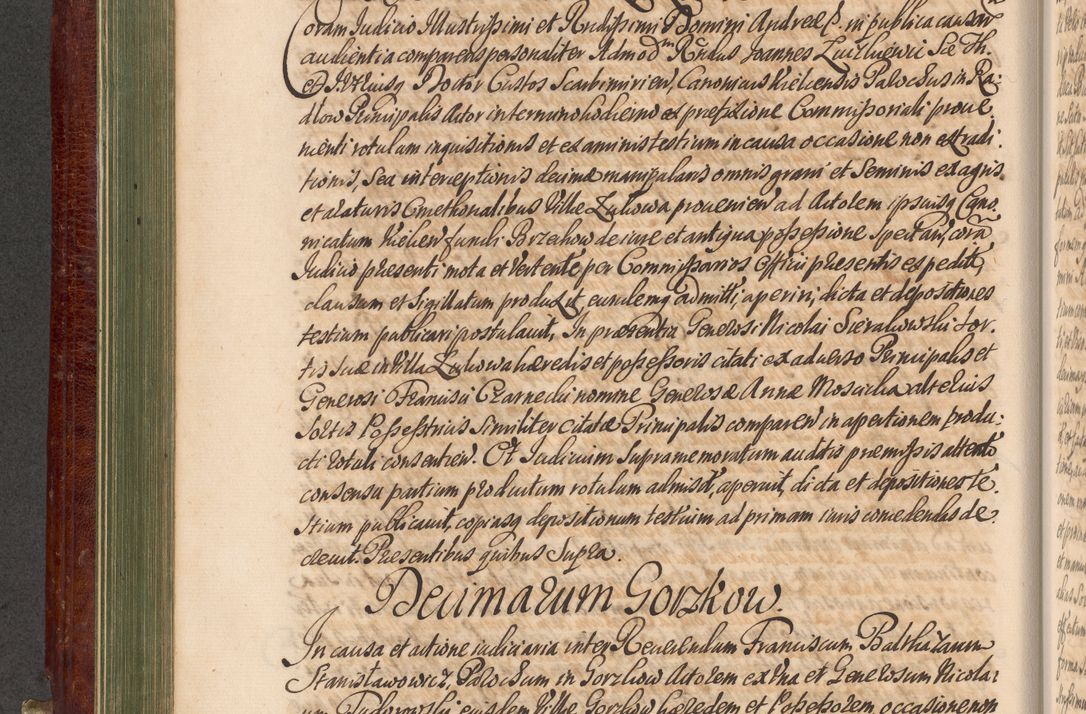 Coram Judicio Illustrissimi et Rndissimi Domini Andreæ ut in publica causarū
audientia comparens personaliter Admodm Rndus Joannes Zuchiewicz S. Th.
et J. V. Doctor Custos Scarbimirien, Canonicus Kielcensis Parochus in Ra:
dlow Principalis Actor in termino hodierno ex præfixione Commissoriali prove
nienti rotulum inquisitionis et examinis testium in causa occasione non extradi:
tionis, sea interceptionis decimæ manipularis omnis grani et Seminis ex agris
et araturis Cmethonalibus Villæ Zukowa provenien ad Actorem ipsiusq Cano
nicatum Kielcen fundi Brzechow de iure et antiqua possessione Spectan, corā
Judicio præsenti mota et Vertente per Commissarios Officii præsentis expedit,
clausum et Sigillatum produxit, eundemq admitti, aperiri, dicta et depositiones
testium publicari postulavit, In præsentia Generosi Nicolai Sierakowski Sor-
tis Suæ in Villa Zukowa hæredis et possessoris citati ex adverso Principalis et
Generosi Francisci Czarnecki nomine Generosæ Annæ Mosucka alterius
Sortis Possestricis Similiter citatæ Principalis comparen in apertionem produ:
cti Rotuli consentien. Et Judicium Supramemoratum auditis præmissis attento
consensu partium productum rotulum admisit, aperuit, dicta et depositiones te
stium publicavit, copiasq depositionum testium ad primam iuris concedendas de
crevit. Præsentibus quibus Supra.
Decimarum Gorzkow.
In causa et actione iudiciaria inter Reverendum Franciscum Balthazarum
Stanisławowicz, Parochum in Gorzkow Actorem ex Una et Generosum Nicolai
um eiusdem Villæ Gorzkow hæredem et Possessorem occasione non